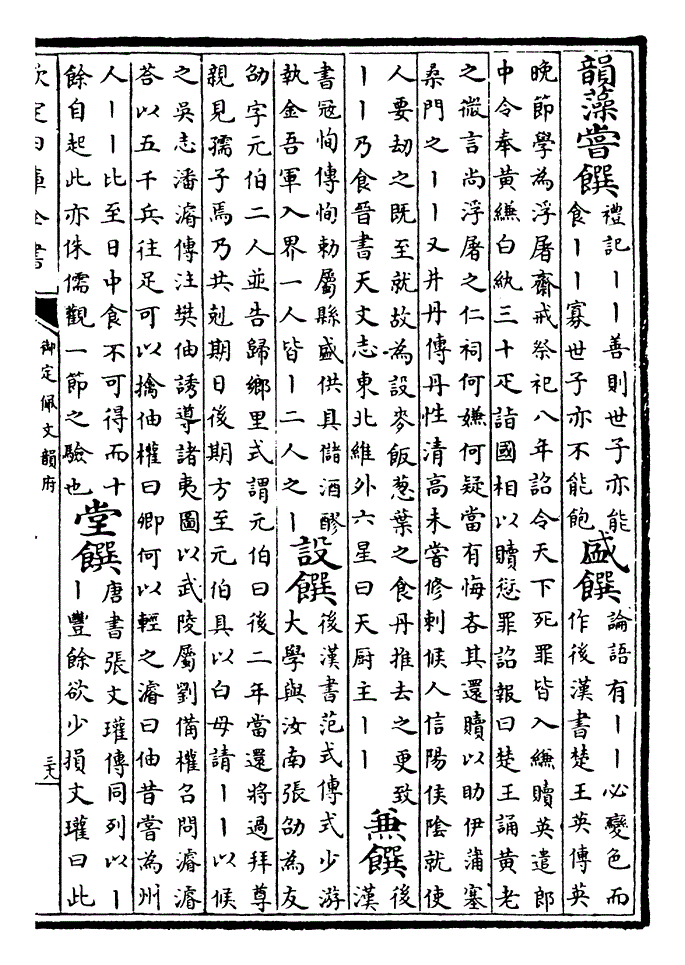 韻藻嘗饌禮記丨丨善則世子亦能
食丨丨寡世子亦不能飽
盛饌論語有丨丨必變色而
作後漢書楚王英傳英
晚節學為浮屠齋戒祭祀八年詔令天下死罪皆入縑贖英遣郎
中令奉黄縑白紈三十疋詣國相以贖愆罪詔報曰楚王誦黄老
之微言尚浮屠之仁祠何嫌何疑當有悔吝其還贖以助伊蒲塞
桑門之丨丨又井丹傳丹性清高未嘗修刺候人信陽侯陰就使
人要劫之既至就故為設麥飯葱葉之食丹推去之更致
丨丨乃食晉書天文志東北維外六星曰天厨主丨丨
兼饌後
漢
書寇恂傳恂勅屬縣盛供具儲酒醪
執金吾軍入界一人皆丨二人之丨
設饌後漢書范式傳式少游
大學與汝南張劭為友
劭字元伯二人並告歸鄉里式謂元伯曰後二年當還將過拜尊
親見孺子焉乃共剋期日後期方至元伯具以白母請丨丨以候
之吳志潘濬傳注樊伷誘導諸夷圖以武陵屬劉備權召問濬濬
答以五千兵往足可以擒伷權曰卿何以輕之濬曰伷昔嘗為州
人丨丨比至日中食不可得而十
餘自起此亦侏儒觀一節之驗也
堂饌唐書張文瓘傳同列以丨
丨豐餘欲少損文瓘曰此
欽定四庫全書
御定佩文韻府